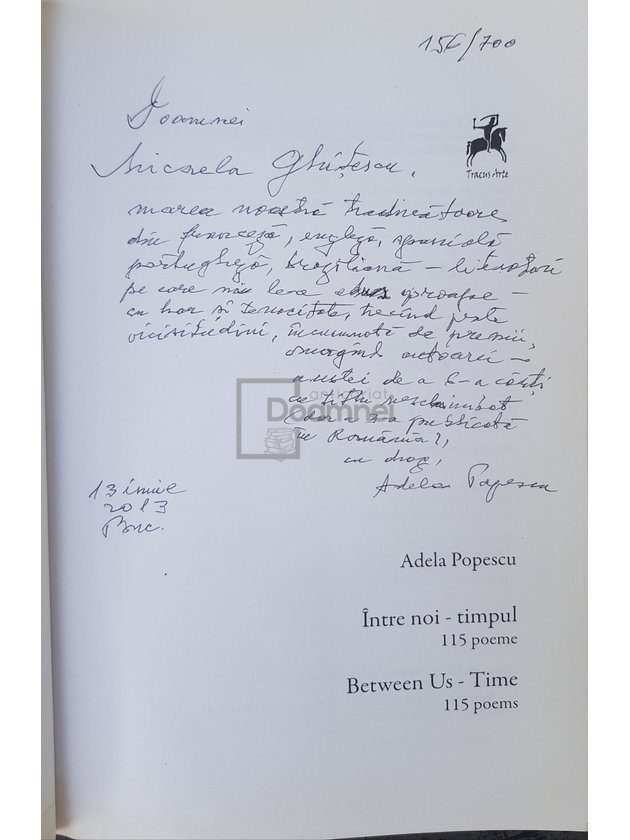 156/700
Tracus Arte
Doamnei
Micaela Ghițescu,
marea noastră traducătoare
din franceză, engleză, spaniolă
portugheză, braziliană – literaturi
pe care ni le-a aproape –
cu har și tenacitate, trecând peste
vicisitudini, încununată de premii,
omagiul autoarei –
acestei de a 6-a cărți
cu titlu neschimbat
(dar a 7-a publicată
în România),
cu drag,
Adela Popescu
13 iunie
2013
Buc.
anticariat
Doamnei
Adela Popescu
Între noi - timpul
115 poeme
Between Us - Time
115 poems